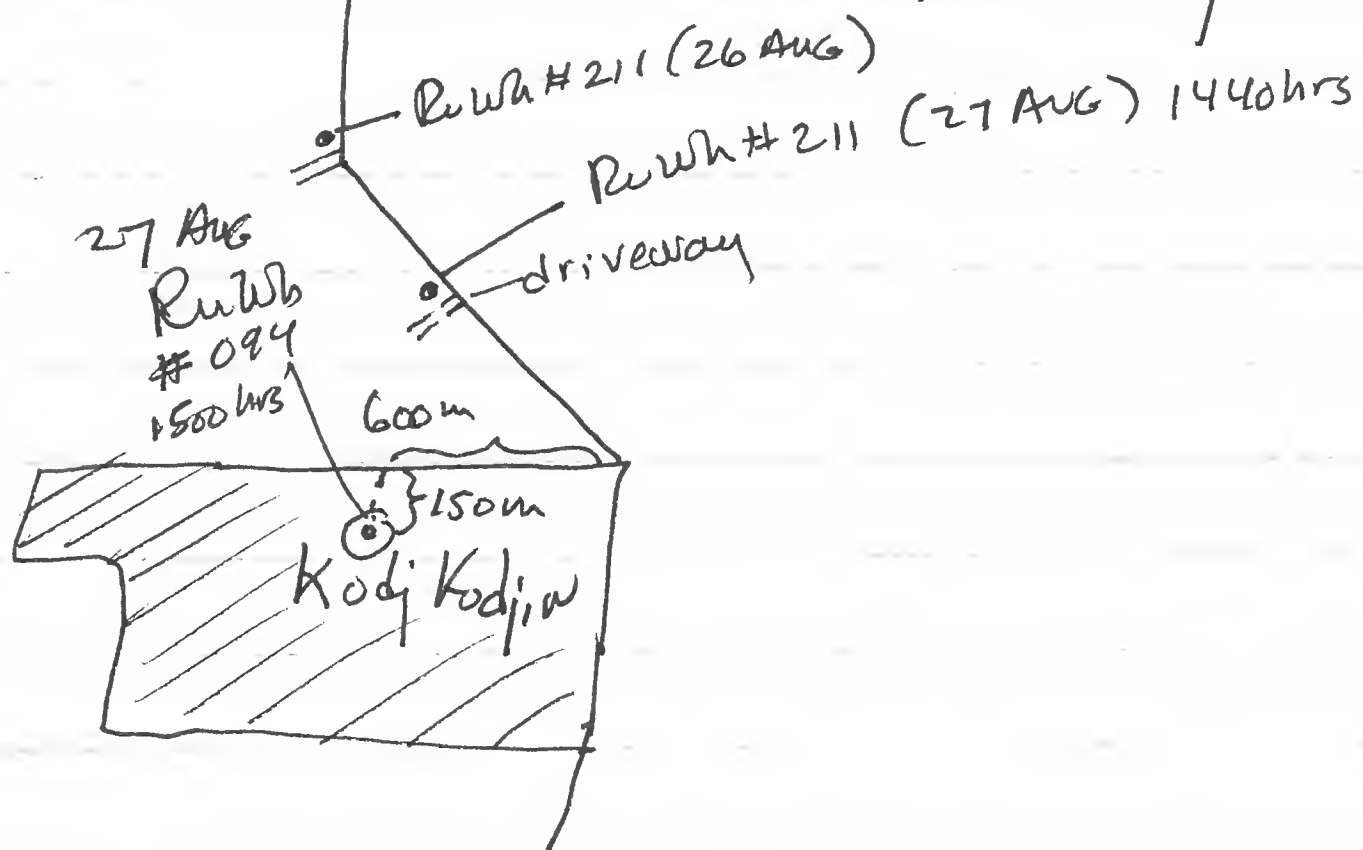 RuWh #211 (26 AUG)
RuWh #211 (27 AUG) 1440hrs
driveway
27 AUG
RuWb
#094
1500 hrs
600m
150m
Kodj Kodjin